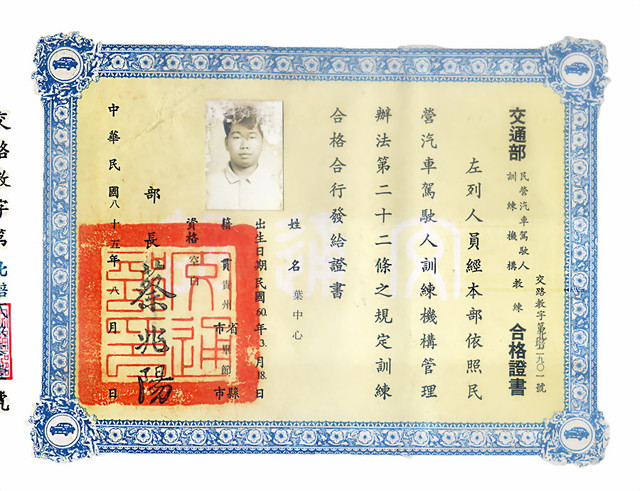 交通部
民營汽車駕駛人
訓練機構教練
合格證書
交路教字第北部二九〇一號
左列人員經本部依照民
營汽車駕駛人訓練機構管理
辦法第二十二條之規定訓練
合格合行發給證書
姓名 葉中心
出生日期民國60年3月18日
籍貫貴州省畢節縣
市 市
資格
部長 蔡兆陽
中華民國八十五年八月 日
交路教字第
號